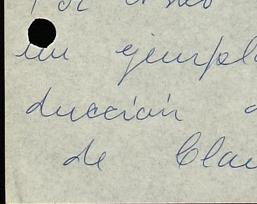 un ejempl
ducción
de Clau